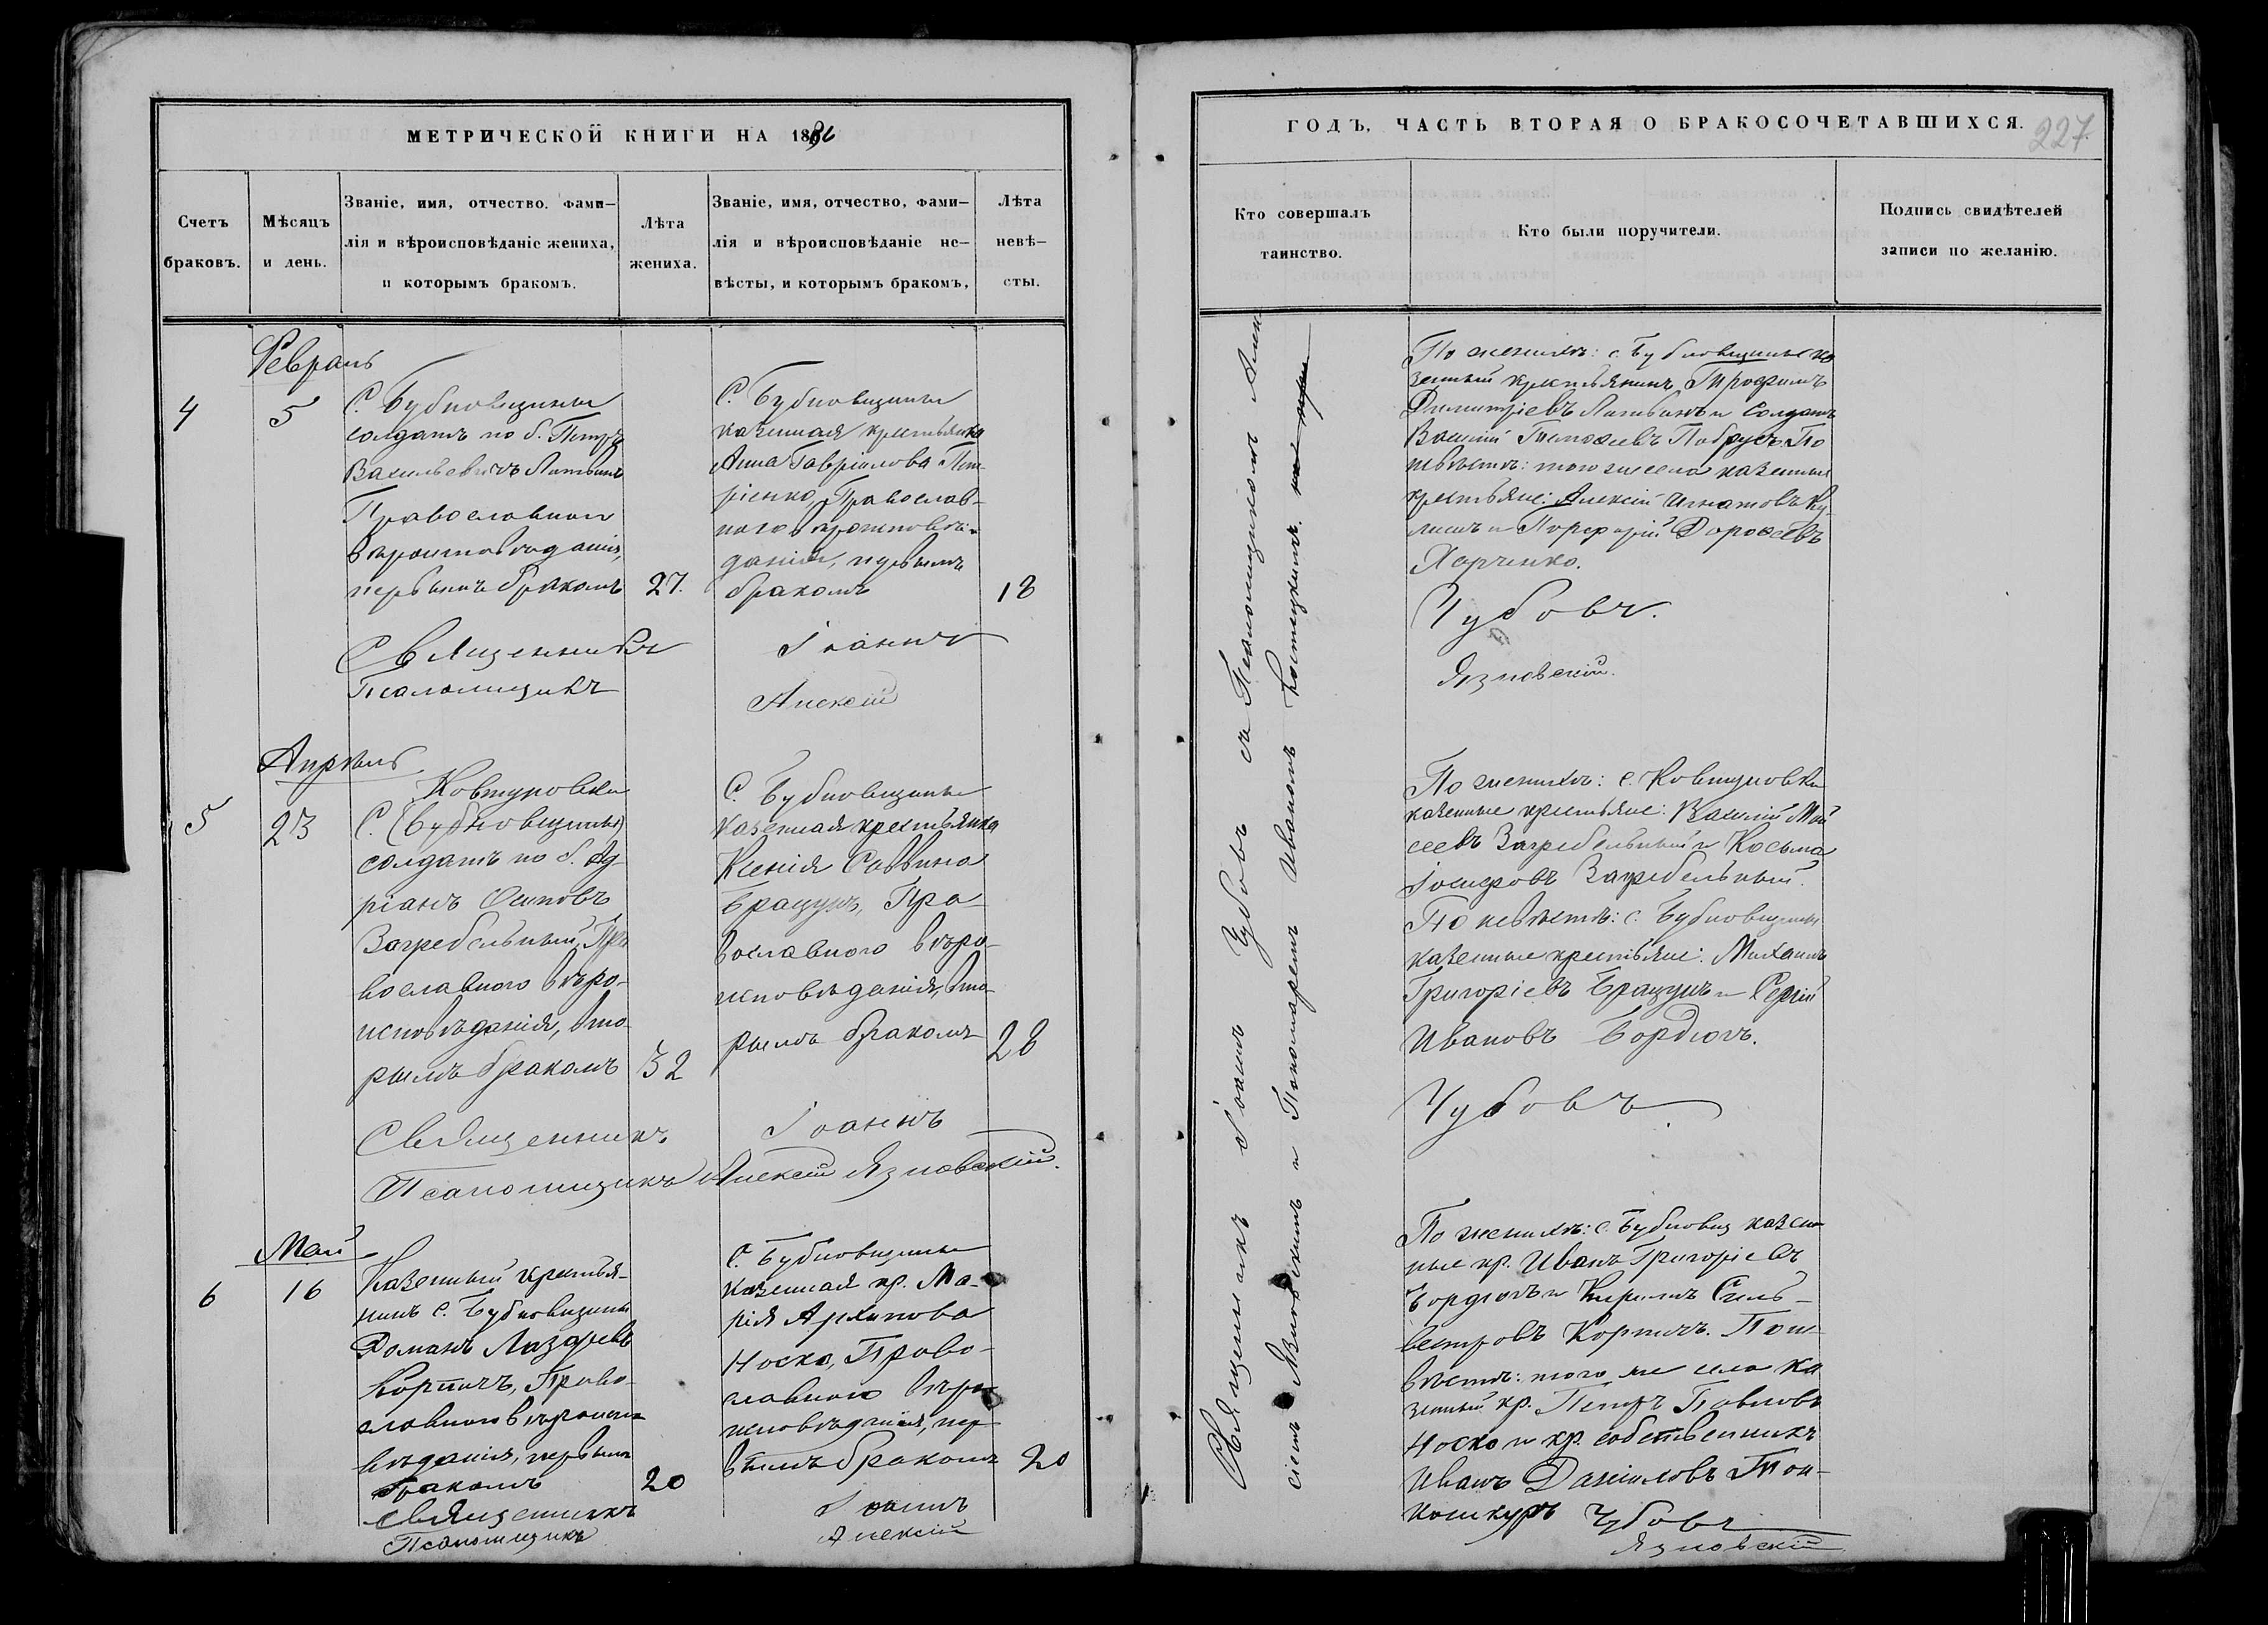 МЕТРИЧЕСКОЙ КНИГИ НА 1886
Счетъ
браковъ.
Мѣсяцъ
и день.
Званіе, имя, отчество, фами-
лія и вѣроисповѣданіе жениха,
и которымъ бракомъ.
Лѣта
жениха.
Званіе, имя, отчество, фами-
лія и вѣроисповѣданіе не-
вѣсты, и которымъ бракомъ,
Лѣта
невѣ-
сты.
Февраль
4
5
С. Бубновщины
солдатъ по б. Петръ
Васильевичъ Литвинъ
Православнаго
вѣроисповѣданія,
первымъ бракомъ
27.
С. Бубновщины
казенная крестьянка
Анна Гавріилова Пет-
ріенко, Православ-
наго вѣроисповѣ-
данія, первымъ
бракомъ
18
Священникъ Іоаннъ
Псаломщикъ Алексій
Апрѣль
5
23
Ковтуновки
С. (Бубновщины)
солдатъ по б. Ад-
ріанъ Осиповъ
Загребельный, Пра-
вославнаго вѣро-
исповѣданія, вто-
рымъ бракомъ
32
С. Бубновщины
казенная крестьянка
Ксенія Саввина
Брацунъ, Пра-
вославнаго вѣро-
исповѣданія, вто-
рымъ бракомъ
28
Священникъ Іоаннъ
Псаломщикъ Алексій Язновскій.
Май
6
16
Казенный крестья-
нинъ с. Бубновщины
Романъ Лазаревъ
Корпичъ, Право-
славнаго вѣроиспо-
вѣданія, первымъ
бракомъ
20
С. Бубновщины
казенная кр. Ма-
рія Архипова
Носко, Право-
славнаго вѣро-
исповѣданія, пер-
вымъ бракомъ
20
Священникъ Іоаннъ
Псаломщикъ Алексій
ГОДЪ, ЧАСТЬ ВТОРАЯ О БРАКОСОЧЕТАВШИХСЯ.
227.
Кто совершалъ
таинство.
Кто были поручители.
Подпись свидѣтелей
записи по желанію.
Священникъ Іоаннъ Чубовъ съ Псаломщикомъ Алек-
сіемъ Язновскимъ и Пономаремъ Иваномъ
По женихѣ: с. Бубновщины ка
зенный крестьянинъ Трофимъ
Димитріевъ Литвинъ и Солдатъ
Василій Тимофеевъ Побрусъ. По
невѣстѣ: того же села казенные
крестьяне: Алексій Игнатовъ Ку-
лишъ и Порфирій Дорофеевъ
Харченко.
Чубовъ.
Язновскій.
По женихѣ: с. Ковтуновки
казенные крестьяне: Василій Мой
сеевъ Загребельный и Косьма
Іосифовъ Загребельный.
По невѣстѣ: с. Бубновщины
казенные крестьяне: Михаилъ
Григоріевъ Брацунъ и Сергій
Ивановъ Бордюгъ.
Чубовъ
По женихѣ: с. Бубновщ казен-
ные кр. Иванъ Григоріевъ
Бордюгъ и Кирилъ Силь-
вестровъ Корпичъ. По не-
вѣстѣ: того же села ка
зенный кр. Петръ Павловъ
Носко и кр. собственникъ
Иванъ Даніиловъ Тон-
кошкуръ
Чубовъ
Язновскій